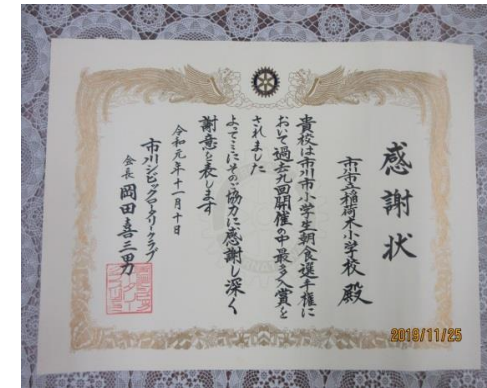 感謝状
市川市立稲荷木小学校 殿
貴校は市川市小学生朝食選手権に
おいて過去九回開催の中最多入賞を
されました
よってここにそのご協力に感謝し深く
謝意を表します
令和元年十一月十日
市川シビックロータリークラブ
会長 岡田喜三男
2019/11/25